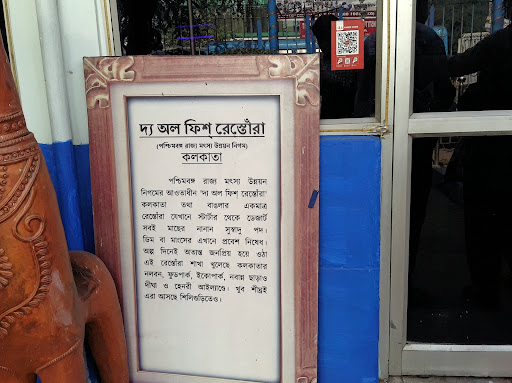 দ্য অল ফিশ্ রেস্তোঁরা
(পশ্চিমবঙ্গ রাজ্য মৎস্য উন্নয়ন নিগম)
কলকাতা
পশ্চিমবঙ্গ রাজ্য মৎস্য উন্নয়ন
নিগমের আওতাধীন 'দ্য অল ফিশ্ রেস্তোঁরা'
কলকাতা তথা বাঙলার একমাত্র
রেস্তোঁরা যেখানে স্টার্টার থেকে ডেজার্ট
সবই মাছের নানান সুস্বাদু পদ।
ডিম বা মাংসের এখানে প্রবেশ নিষেধ।
অল্প দিনেই অত্যন্ত জনপ্রিয় হয়ে ওঠা
এই রেস্তোঁরা শাখা খুলেছে কলকাতার
নলবন, ফুডপার্ক, ইকোপার্ক, নবান্ন ছাড়াও
দীঘা ও হেনরী আইল্যাণ্ডে। খুব শীঘ্রই
এরা আসছে শিলিগুড়িতেও।